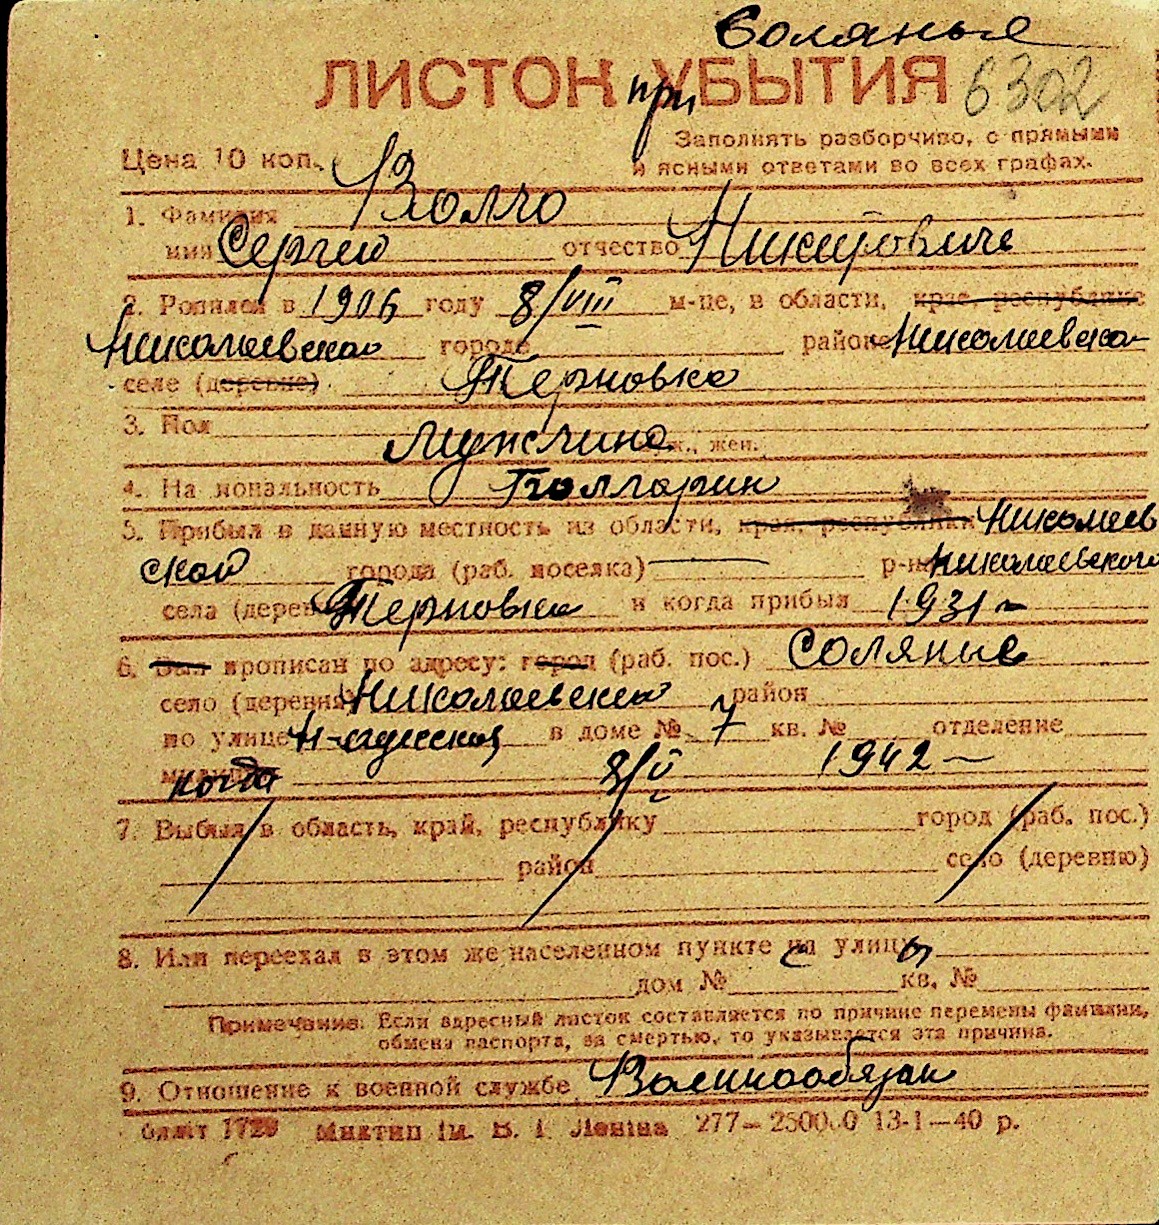 Соляные
ЛИСТОК при УБЫТИЯ 6302
Заполнять разборчиво, с прямыми
Цена 10 коп. и ясными ответами во всех графах.
1. Фамилия Волчо
имя Сергей отчество Никитович
2. Родился в 1906 году 8/VIII м-це, в области, края, республике
Николаевской городе районе Николаевско
селе (деревне) Терновке
3. Пол Мужчина ж., жен.
4. На иональность Болгарин
5. Прибыл в данную местность из области, края, республики Николаев
ской города (раб. поселка) р-на Николаевского
села (деревни) Терновка и когда прибыл 1931
6. Был прописан по адресу: город (раб. пос.) Соляные
село (деревня) Николаевский район
по улице в доме № 7 кв. № отделение
когда 8/V 1942
7. Выбыл в область, край, республику город (раб. пос.)
район село (деревню)
8. Или переехал в этом же населенном пункте с улицы
дом № кв. №
Примечание: Если адресный листок составляется по причине перемены фамилии,
обмена паспорта, за смертью, то указывается эта причина.
9. Отношение к военной службе Военнообязан
блліт 1729 Миктип ім. В. І Леніна 277—25000 13-1—40 р.